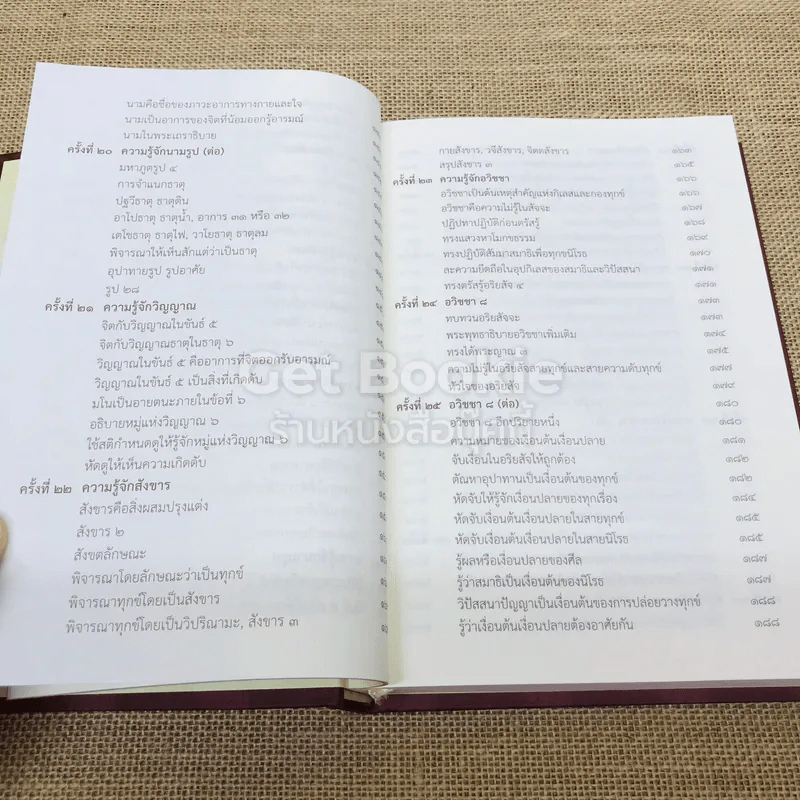 นามคือชื่อของภาวะอาการทางกายและใจ
นามเป็นอาการของจิตที่น้อมออกรู้อารมณ์
นามในพระเถราธิบาย
ครั้งที่ ๒๐ ความรู้จักนามรูป (ต่อ)
มหาภูตรูป ๔
การจำแนกธาตุ
ปฐวีธาตุ ธาตุดิน
อาโปธาตุ ธาตุน้ำ, อาการ ๓๑ หรือ ๓๒
เตโชธาตุ ธาตุไฟ, วาโยธาตุ ธาตุลม
พิจารณาให้เห็นสักแต่ว่าเป็นธาตุ
อุปาทายรูป รูปอาศัย
รูป ๒๘
ครั้งที่ ๒๑ ความรู้จักวิญญาณ
จิตกับวิญญาณในขันธ์ ๕
จิตกับวิญญาณธาตุในธาตุ ๖
วิญญาณในขันธ์ ๕ คืออาการที่จิตออกรับอารมณ์
วิญญาณในขันธ์ ๕ เป็นสิ่งที่เกิดดับ
มโนเป็นอายตนะภายในข้อที่ ๖
อธิบายหมู่แห่งวิญญาณ ๖
ใช้สติกำหนดดูให้รู้จักหมู่แห่งวิญญาณ ๖
หัดดูให้เห็นความเกิดดับ
ครั้งที่ ๒๒ ความรู้จักสังขาร
สังขารคือสิ่งผสมปรุงแต่ง
สังขาร ๒
สังขตลักษณะ
พิจารณาโดยลักษณะว่าเป็นทุกข์
พิจารณาทุกข์โดยเป็นสังขาร
พิจารณาทุกข์โดยเป็นวิปริณามะ, สังขาร ๓
กายสังขาร, วจีสังขาร, จิตตสังขาร ๑๖๓
สรุปสังขาร ๓ ๑๖๕
ครั้งที่ ๒๓ ความรู้จักอวิชชา ๑๖๖
อวิชชาเป็นต้นเหตุสำคัญแห่งกิเลสและกองทุกข์ ๑๖๖
อวิชชาคือความไม่รู้ในสัจจะ ๑๖๗
ปฏิปทาปฏิบัติก่อนตรัสรู้ ๑๖๘
ทรงแสวงหาโมกขธรรม ๑๖๙
ทรงปฏิบัติสัมมาสมาธิเพื่อทุกขนิโรธ ๑๗๐
ละความยึดถือในอุปกิเลสของสมาธิและวิปัสสนา ๑๗๑
ทรงตรัสรู้อริยสัจ ๔ ๑๗๑
ครั้งที่ ๒๔ อวิชชา ๘ ๑๗๓
ทบทวนอริยสัจจะ ๑๗๓
พระพุทธาธิบายอวิชชาเพิ่มเติม ๑๗๔
ทรงได้พระญาณ ๓ ๑๗๕
ความไม่รู้ในอริยสัจสายทุกข์และสายความดับทุกข์ ๑๗๗
หัวใจของอริยสัจ ๑๗๙
ครั้งที่ ๒๕ อวิชชา ๘ (ต่อ) ๑๘๐
อวิชชา ๘ อีกปริยายหนึ่ง ๑๘๐
ความหมายของเงื่อนต้นเงื่อนปลาย ๑๘๑
จับเงื่อนในอริยสัจให้ถูกต้อง ๑๘๒
ตัณหาอุปาทานเป็นเงื่อนต้นของทุกข์ ๑๘๒
หัดจับให้รู้จักเงื่อนปลายของทุกเรื่อง ๑๘๔
หัดจับเงื่อนต้นเงื่อนปลายในสายทุกข์ ๑๘๕
หัดจับเงื่อนต้นเงื่อนปลายในสายนิโรธ ๑๘๕
รู้ผลหรือเงื่อนปลายของศีล ๑๘๗
รู้ว่าสมาธิเป็นเงื่อนต้นของนิโรธ ๑๘๗
วิปัสสนาปัญญาเป็นเงื่อนต้นของการปล่อยวางทุกข์ ๑๘๘
รู้ว่าเงื่อนต้นเงื่อนปลายต้องอาศัยกัน ๑๘๘
Get Bookie